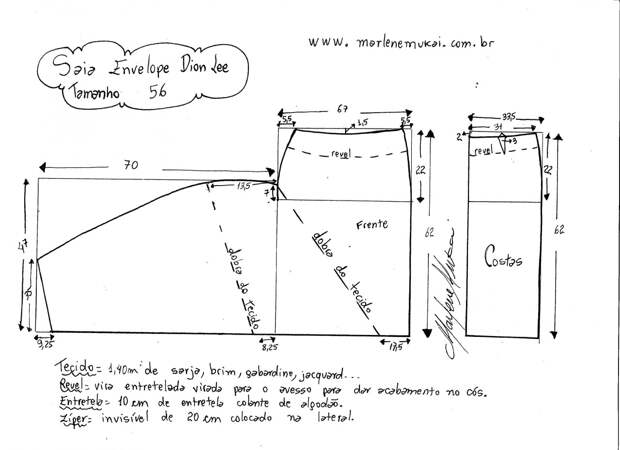 www.marlenemukai.com.br
Saia Envelope Dion Lee
Tamanho 56
67
5,5
1,5
5,5
revel
22
70
13,5
7
47
62
Frente
dobra do tecido
dobra do tecido
3,25
8,25
17,5
Marlene Mukai
33,5
31
2
3
revel
22
62
Costas
Tecido= 1,40m de sarja, brim, gabardine, jacquard...
Revel= vira entretelada virada para o avesso para dar acabamento no cós.
Entretela= 10 cm de entretela colante de algodão.
Zíper= invisível de 20 cm colocado na lateral.